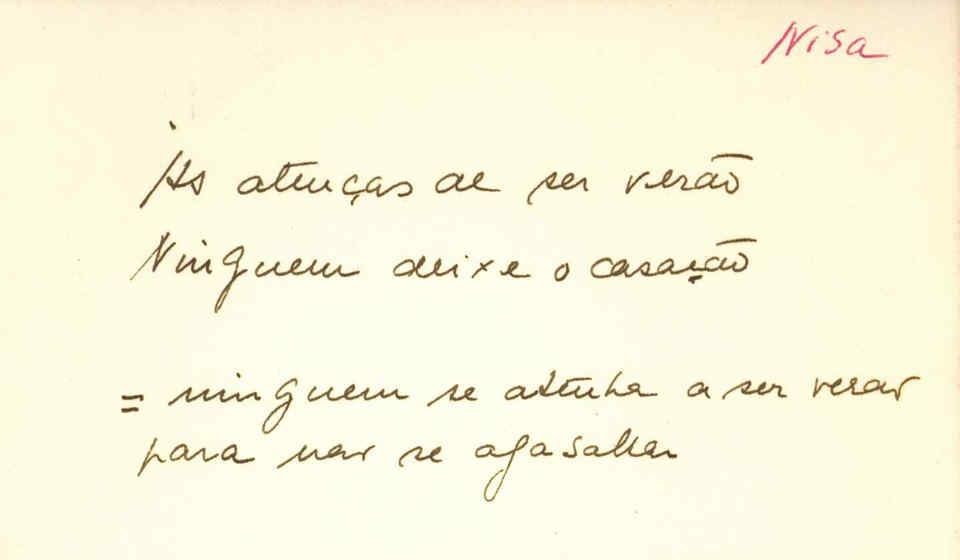 Nisa
Às atenças de ser verão
Ninguem deixe o casacão
= ninguem se atenha a ser verão
para não se agasalhar